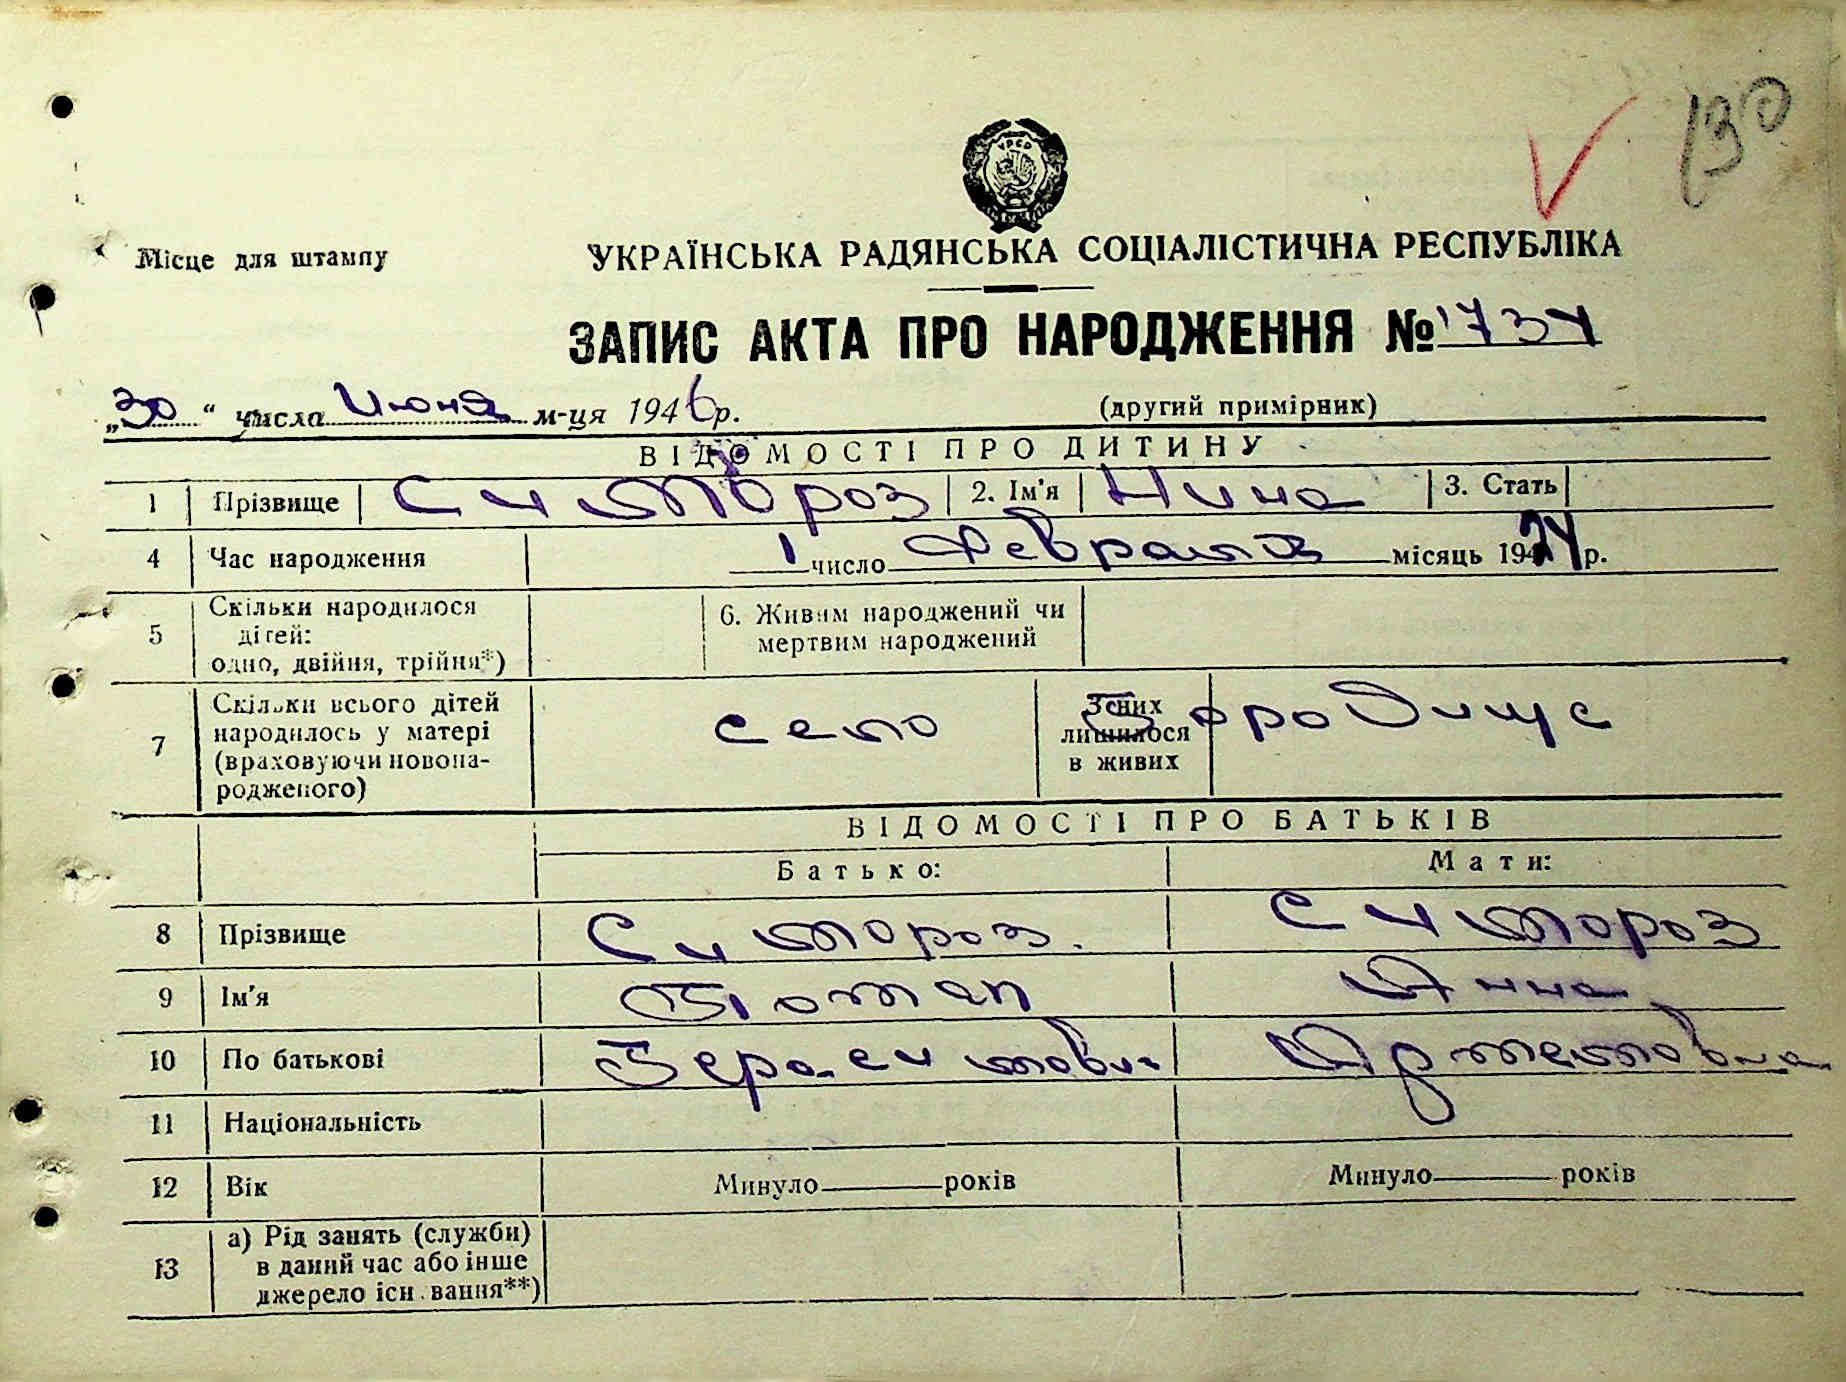 130
УРСР
Місце для штампу
УКРАЇНСЬКА РАДЯНСЬКА СОЦІАЛІСТИЧНА РЕСПУБЛІКА
ЗАПИС АКТА ПРО НАРОДЖЕННЯ № 734
„30“ числа Июня м-ця 1946 р. (другий примірник)
ВІДОМОСТІ ПРО ДИТИНУ
1 Прізвище Симороз 2. Ім'я Нина 3. Стать
4 Час народження 1 число Февраля місяць 1924 р.
5 Скільки народилося дітей: одно, двійня, трійня*) 6. Живим народжений чи мертвим народжений
7 Скільки всього дітей народилось у матері (враховуючи новонародженого) село З них лишилося в живих Бородище
ВІДОМОСТІ ПРО БАТЬКІВ
Батько: Мати:
8 Прізвище Симороз. Симороз
9 Ім'я Анна
10 По батькові Герасимович Артемовна
11 Національність
12 Вік Минуло років Минуло років
13 а) Рід занять (служби) в даний час або інше джерело існ вання**)